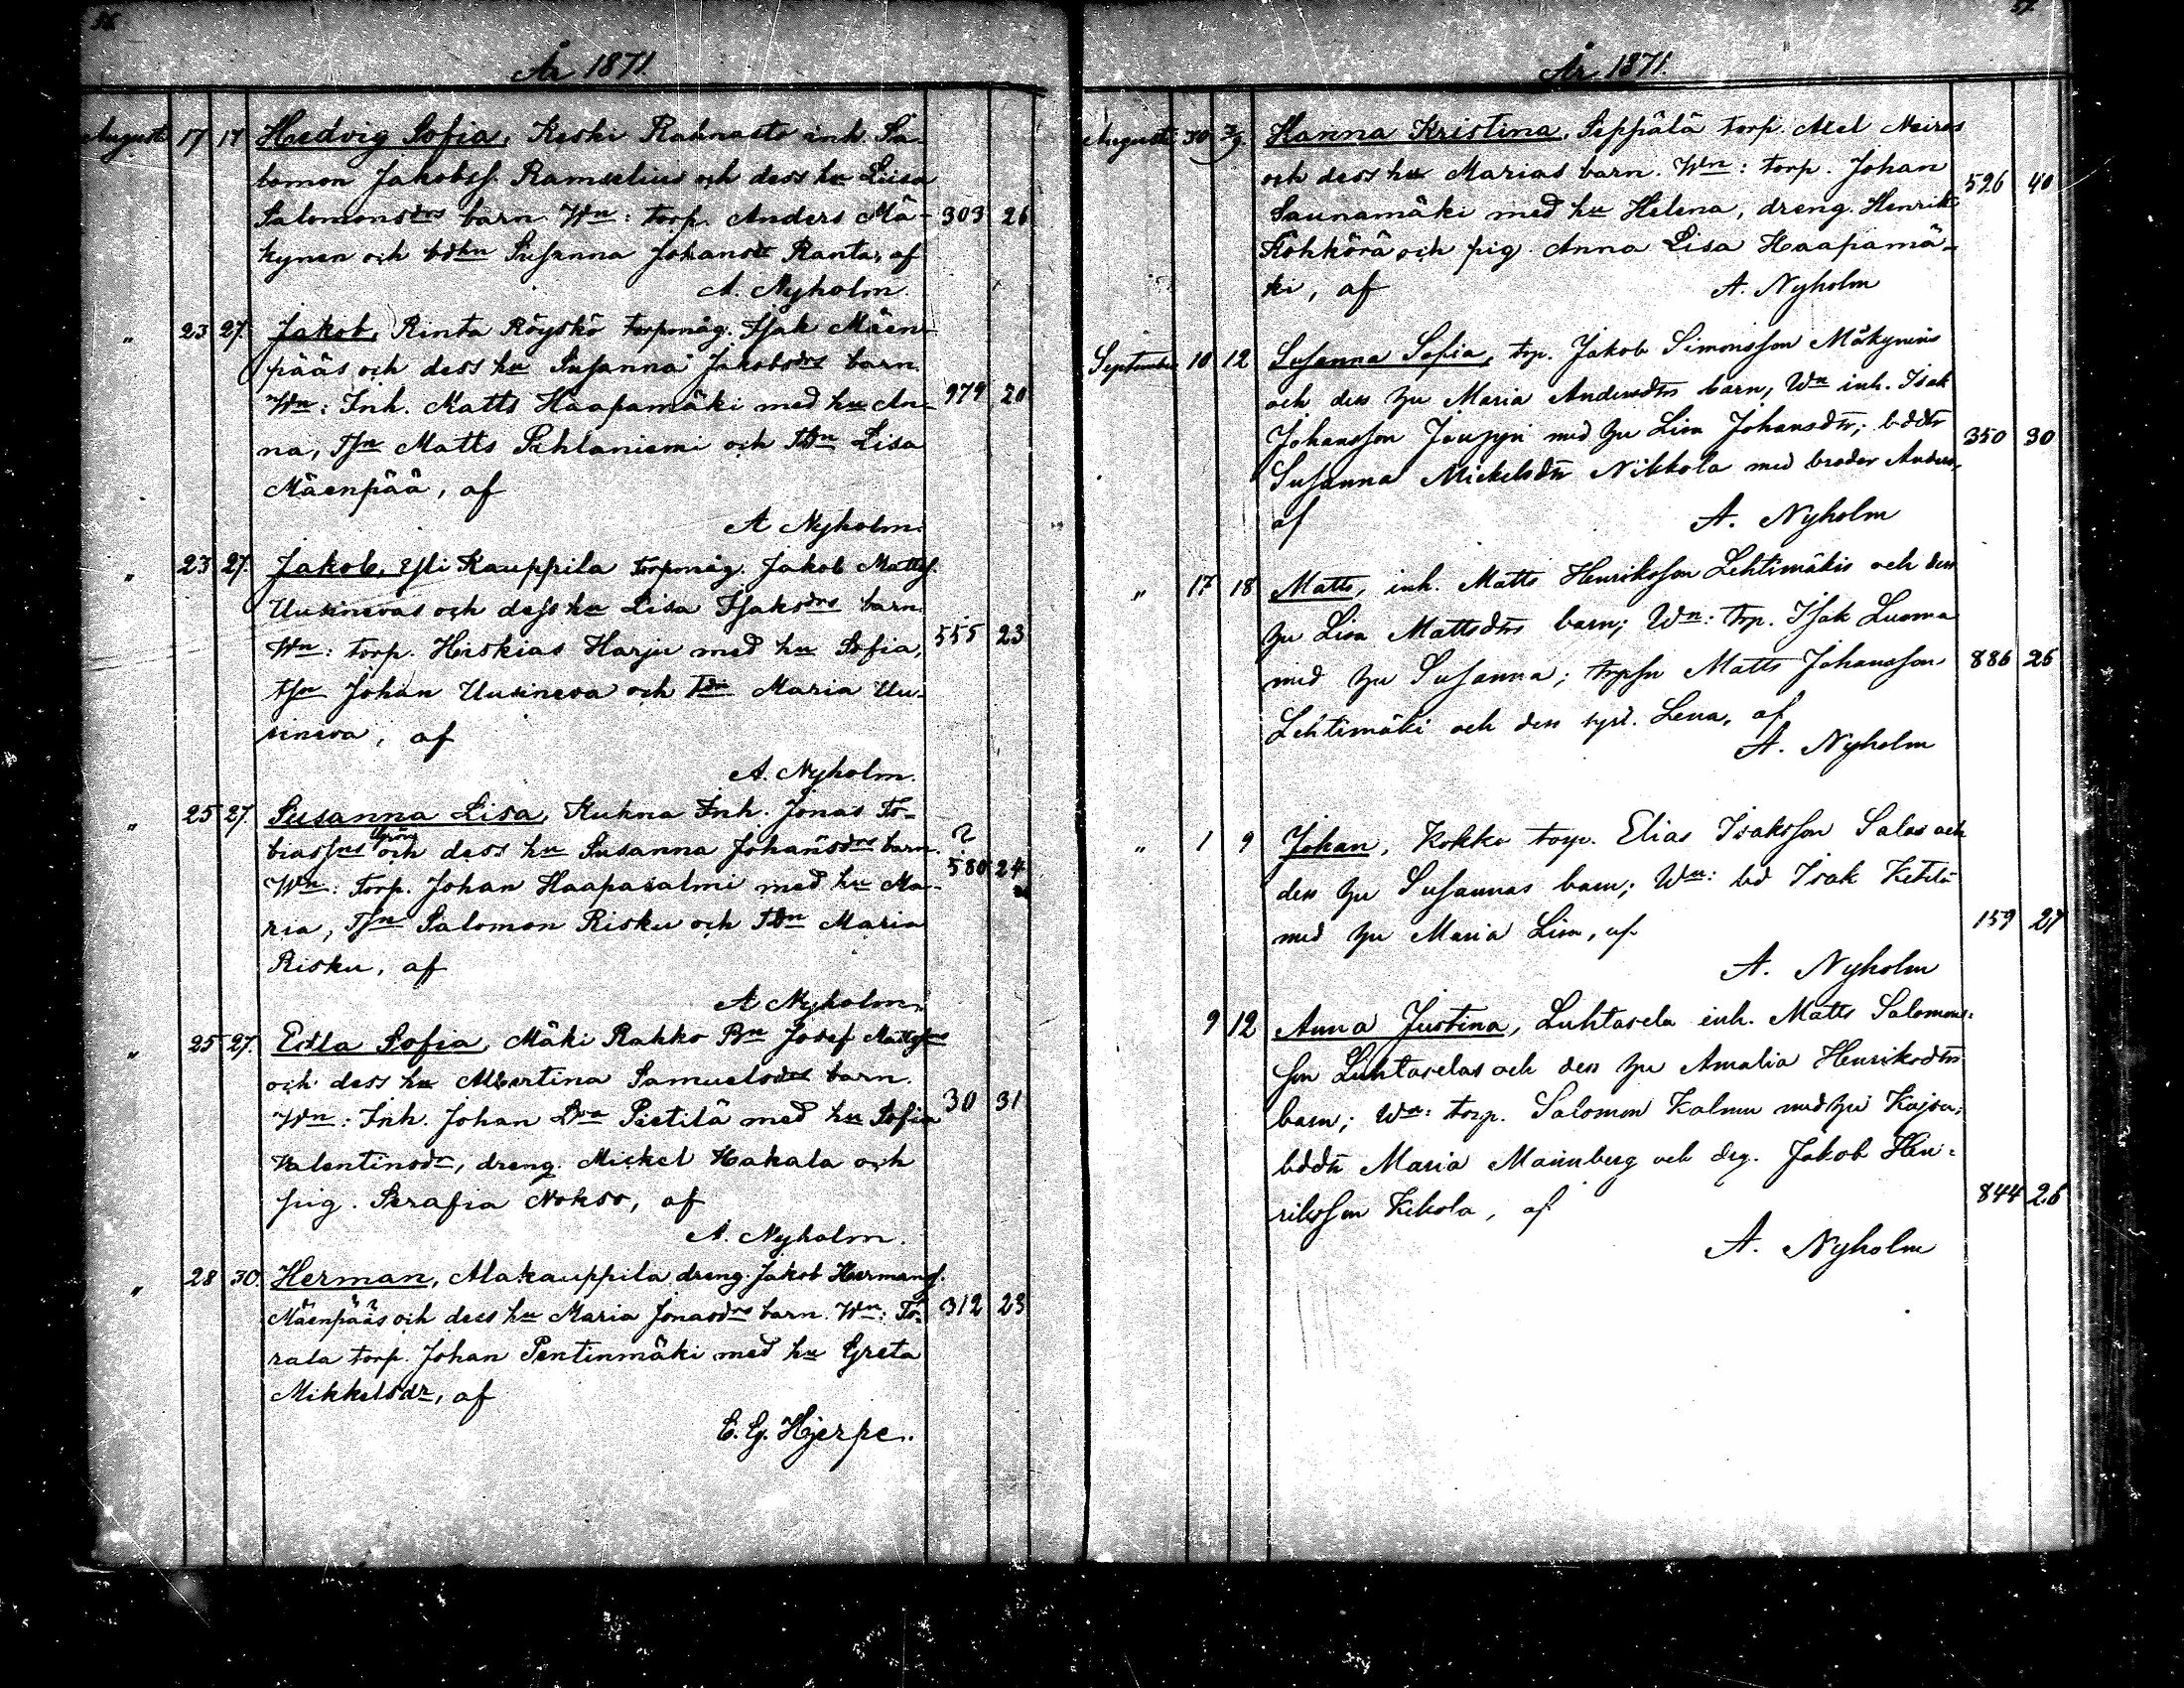 56.
År 1871.
Augusti 17 17 Hedvig Sofia, Keski Rahnasto inh. Sa-
lomon Jakobsſ. Ramselius och dess hu Liisa
Salomonsdrs barn. Wn: torp. Anders Mä- 303 26
kynen och bdhu Susanna Johansdr Ranta, af
A. Nyholm.
" 23 27. Jakob, Rinta Röyskö torpmåg. Isak Mäen-
pääs och dess hu Susanna Jakobsdrs barn.
Wn: Inh. Matts Haapamäki med hu An- 979 20
na, Tsn Matts Pihlaniemi och Tdn Lisa
Mäenpää, af
A Nyholm.
" 23 27. Jakob, Yli Kauppila torpmåg. Jakob Mattsſ.
Uusinevas och dess hu Lisa Isaksdrs barn.
Wn: torp. Heskias Harju med hu Sofia, 555 23
tsn Johan Uusineva och Tdn Maria Uu-
sineva, af
A. Nyholm.
" 25 27. Susanna Lisa, Kuhna Inh. Jonas To-
biassns och dess hu Susanna Johansdrs barn. ?
Wn: Torp. Johan Haapasalmi med hu Ma- 580 24
ria, Tsn Salomon Risku och Tdn Maria
Risku, af
A Nyholm.
" 25 27. Edla Sofia, Mäki Rahko Bn Josef Mattssns
och dess hu Albertina Samuelsdrs barn.
Wn: Inh. Johan Pietilä med hu Sofia 30 31
Valentinsdr, dreng. Mickel Hakala och
pig. Serafia Nokso, af
A. Nyholm.
" 28 30. Herman, Alakauppila dreng. Jakob Hermansſ.
Mäenpääs och dess hu Maria Jonasdrs barn. Wn: To- 312 23
rala torp. Johan Pentinmäki med hu Greta
Mikkelsdr, af
E. G. Hjerpe.
57.
År 1871.
Augusti 30 3/9. Hanna Kristina, Seppälä torp. Abel Neiros
och dess hu Marias barn. Wn: torp. Johan 526 40
Saunamäki med hu Helena, dreng. Henrik
Kohkörä och pig. Anna Lisa Haapamä-
ki, af A. Nyholm
September 10 12 Susanna Sofia, trp. Jakob Simonsson Mäkynens
och dess hu Maria Andersdtrs barn, Wn inh. Isak
Johansson Joupyn med hu Lisa Johansdtr; bddtr 350 30
Susanna Mickelsdtr Nikkola med broder Anders,
af A. Nyholm
" 17 18 Matts, inh. Matts Henriksson Lehtimäkis och dess
hu Lisa Mattsdtrs barn; Wn: trp. Isak Luoma
med hu Susanna; trpsn Matts Johansson 886 26
Lehtimäki och dess syst. Lena, af
A. Nyholm
" 1 9 Johan, Kokko torp. Elias Isaksson Salos och
dess hu Susannas barn; Wn: bd Isak Ketilä
med hu Maria Lisa, af 159 27
A. Nyholm
9 12 Anna Justina, Luhtasela inh. Matts Salomons-
son Luhtaselas och dess hu Amalia Henriksdtrs
barn; Wn: torp. Salomon Kalmu med hu Kajsa,
bddtr Maria Mannberg och drg. Jakob Hen-
riksson Kekola, af 844 26
A. Nyholm